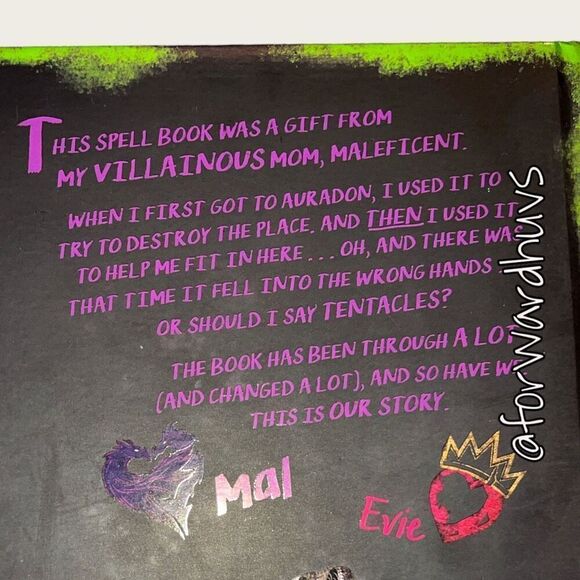 THIS SPELL BOOK WAS A GIFT FROM
MY VILLAINOUS MOM, MALEFICENT.
WHEN I FIRST GOT TO AURADON, I USED IT TO
TRY TO DESTROY THE PLACE. AND THEN I USED IT
TO HELP ME FIT IN HERE . . . OH, AND THERE WAS
THAT TIME IT FELL INTO THE WRONG HANDS
OR SHOULD I SAY TENTACLES?
THE BOOK HAS BEEN THROUGH A LOT
(AND CHANGED A LOT), AND SO HAVE WE
THIS IS OUR STORY.
Mal
Evie
@forwardhuvs